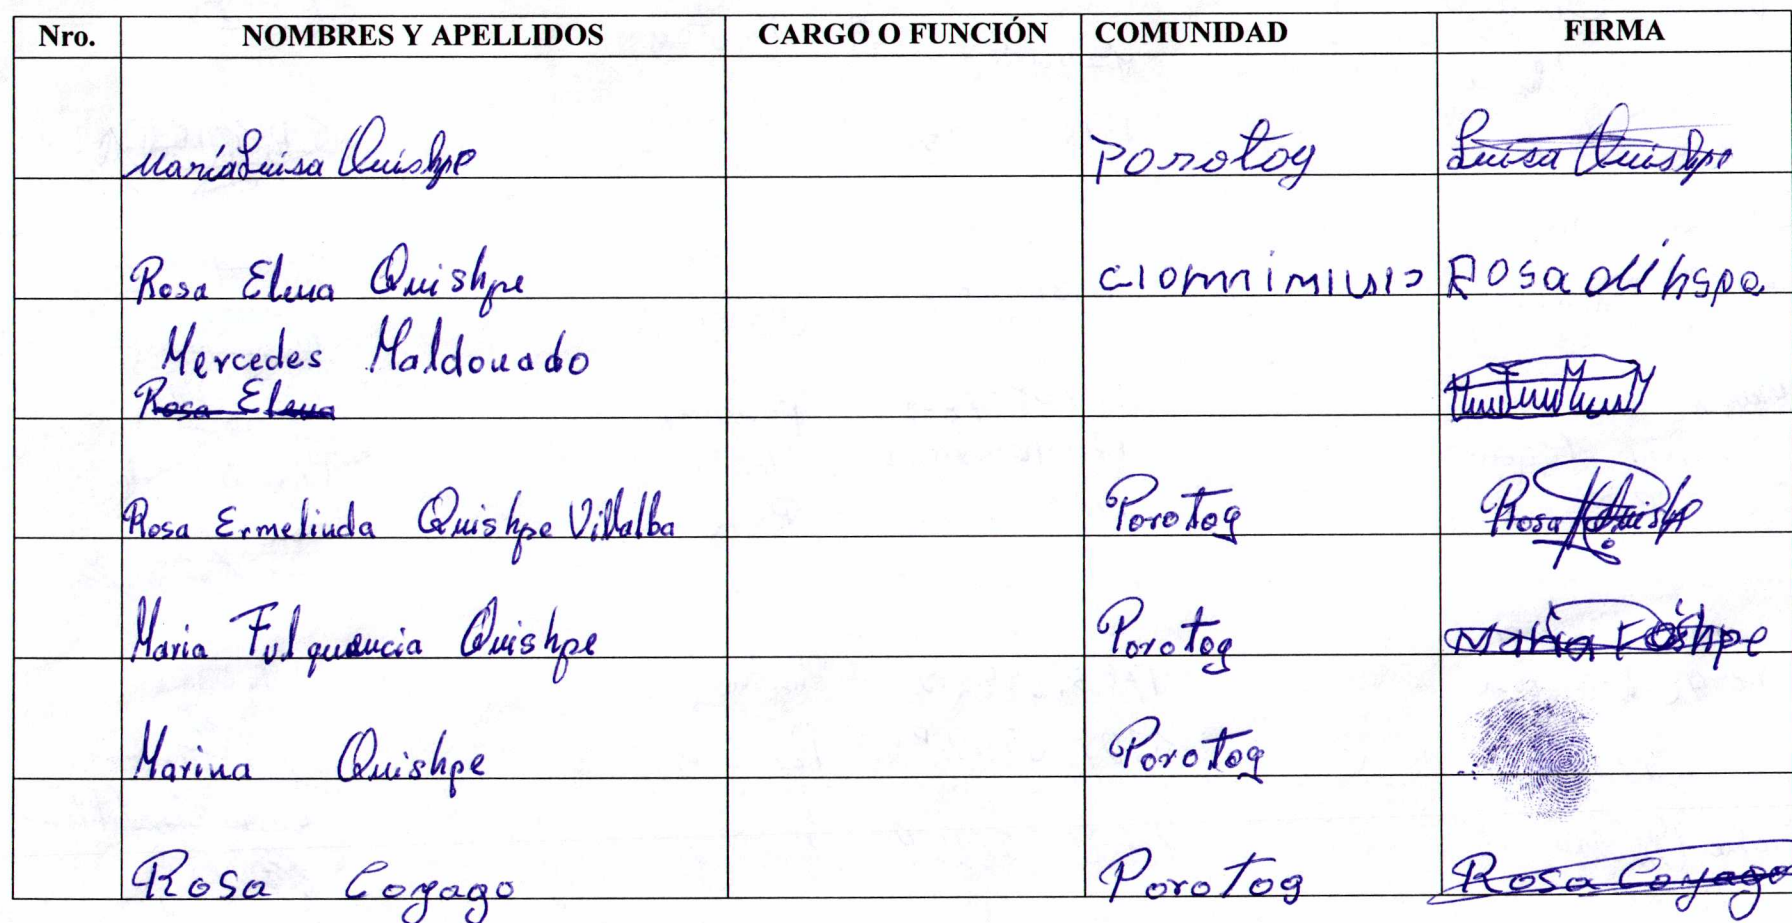 Nro. NOMBRES Y APELLIDOS CARGO O FUNCIÓN COMUNIDAD FIRMA
María Luisa Quishpe Porotog Luisa Quishpe
Rosa Elena Quishpe Rosa
Mercedes Maldonado
Rosa Elena
Rosa Ermelinda Quishpe Villalba Porotog Rosa Quishp
Maria Fulquencia Quishpe Porotog Maria
Marina Quishpe Porotog
Rosa Coyago Porotog Rosa Coyago